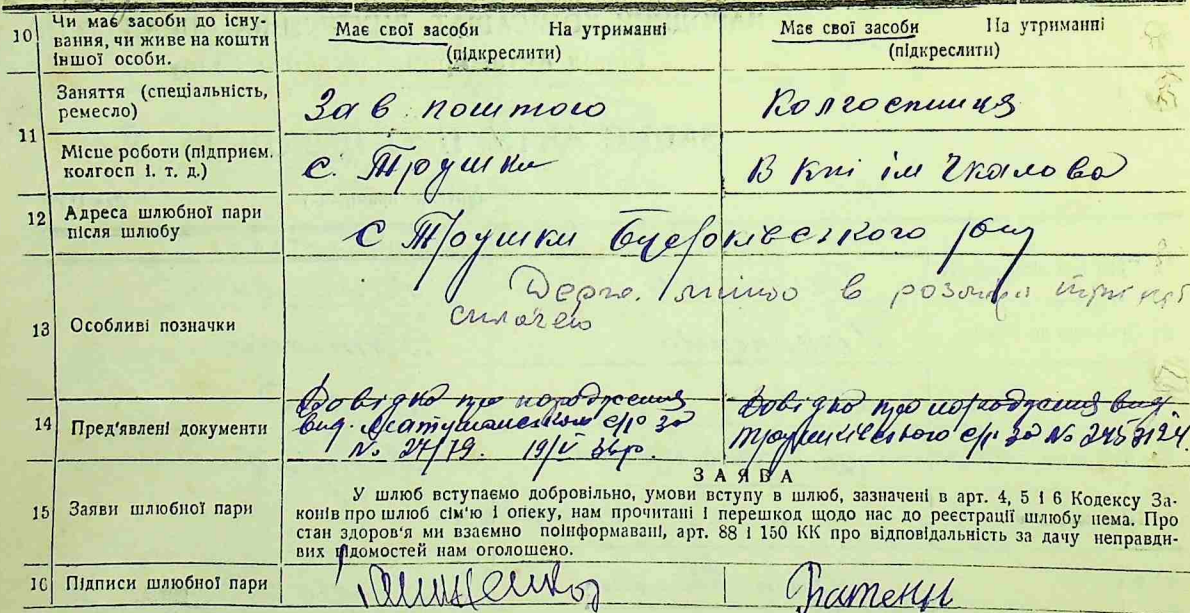 10 Чи має засоби до існу-
вання, чи живе на кошти
іншої особи.
Має свої засоби На утриманні
(підкреслити)
Має свої засоби На утриманні
(підкреслити)
11
Заняття (спеціальність,
ремесло)
Зав поштою
Колгоспниця
Місце роботи (підприєм.
колгосп і. т. д.)
с. Трушки
В к-пі ім Чкалова
12 Адреса шлюбної пари
після шлюбу
с Трушки
13 Особливі позначки
Держ. мито в розмірі
сплачено
14 Пред'явлені документи
Довідка про народження
вид. с/р за
№ 27/79. 19/V 34р.
Довідка про народження вид.
Трушківського с/р за №
ЗАЯВА
15 Заяви шлюбної пари
У шлюб вступаємо добровільно, умови вступу в шлюб, зазначені в арт. 4, 5 і 6 Кодексу За-
конів про шлюб сім'ю і опеку, нам прочитані і перешкод щодо нас до реєстрації шлюбу нема. Про
стан здоров'я ми взаємно поінформавані, арт. 88 і 150 КК про відповідальність за дачу неправди-
вих відомостей нам оголошено.
16 Підписи шлюбної пари